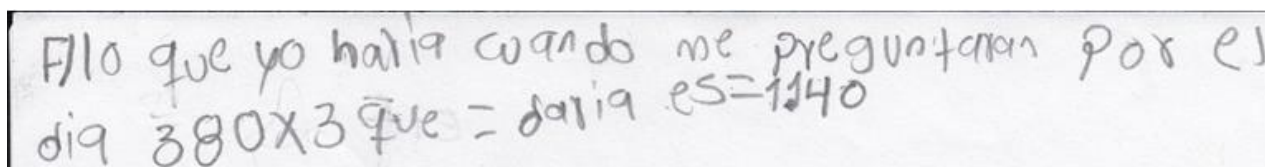 Fllo que yo haria cuando me preguntaran por el
dia 380X3 que = daria es=1140